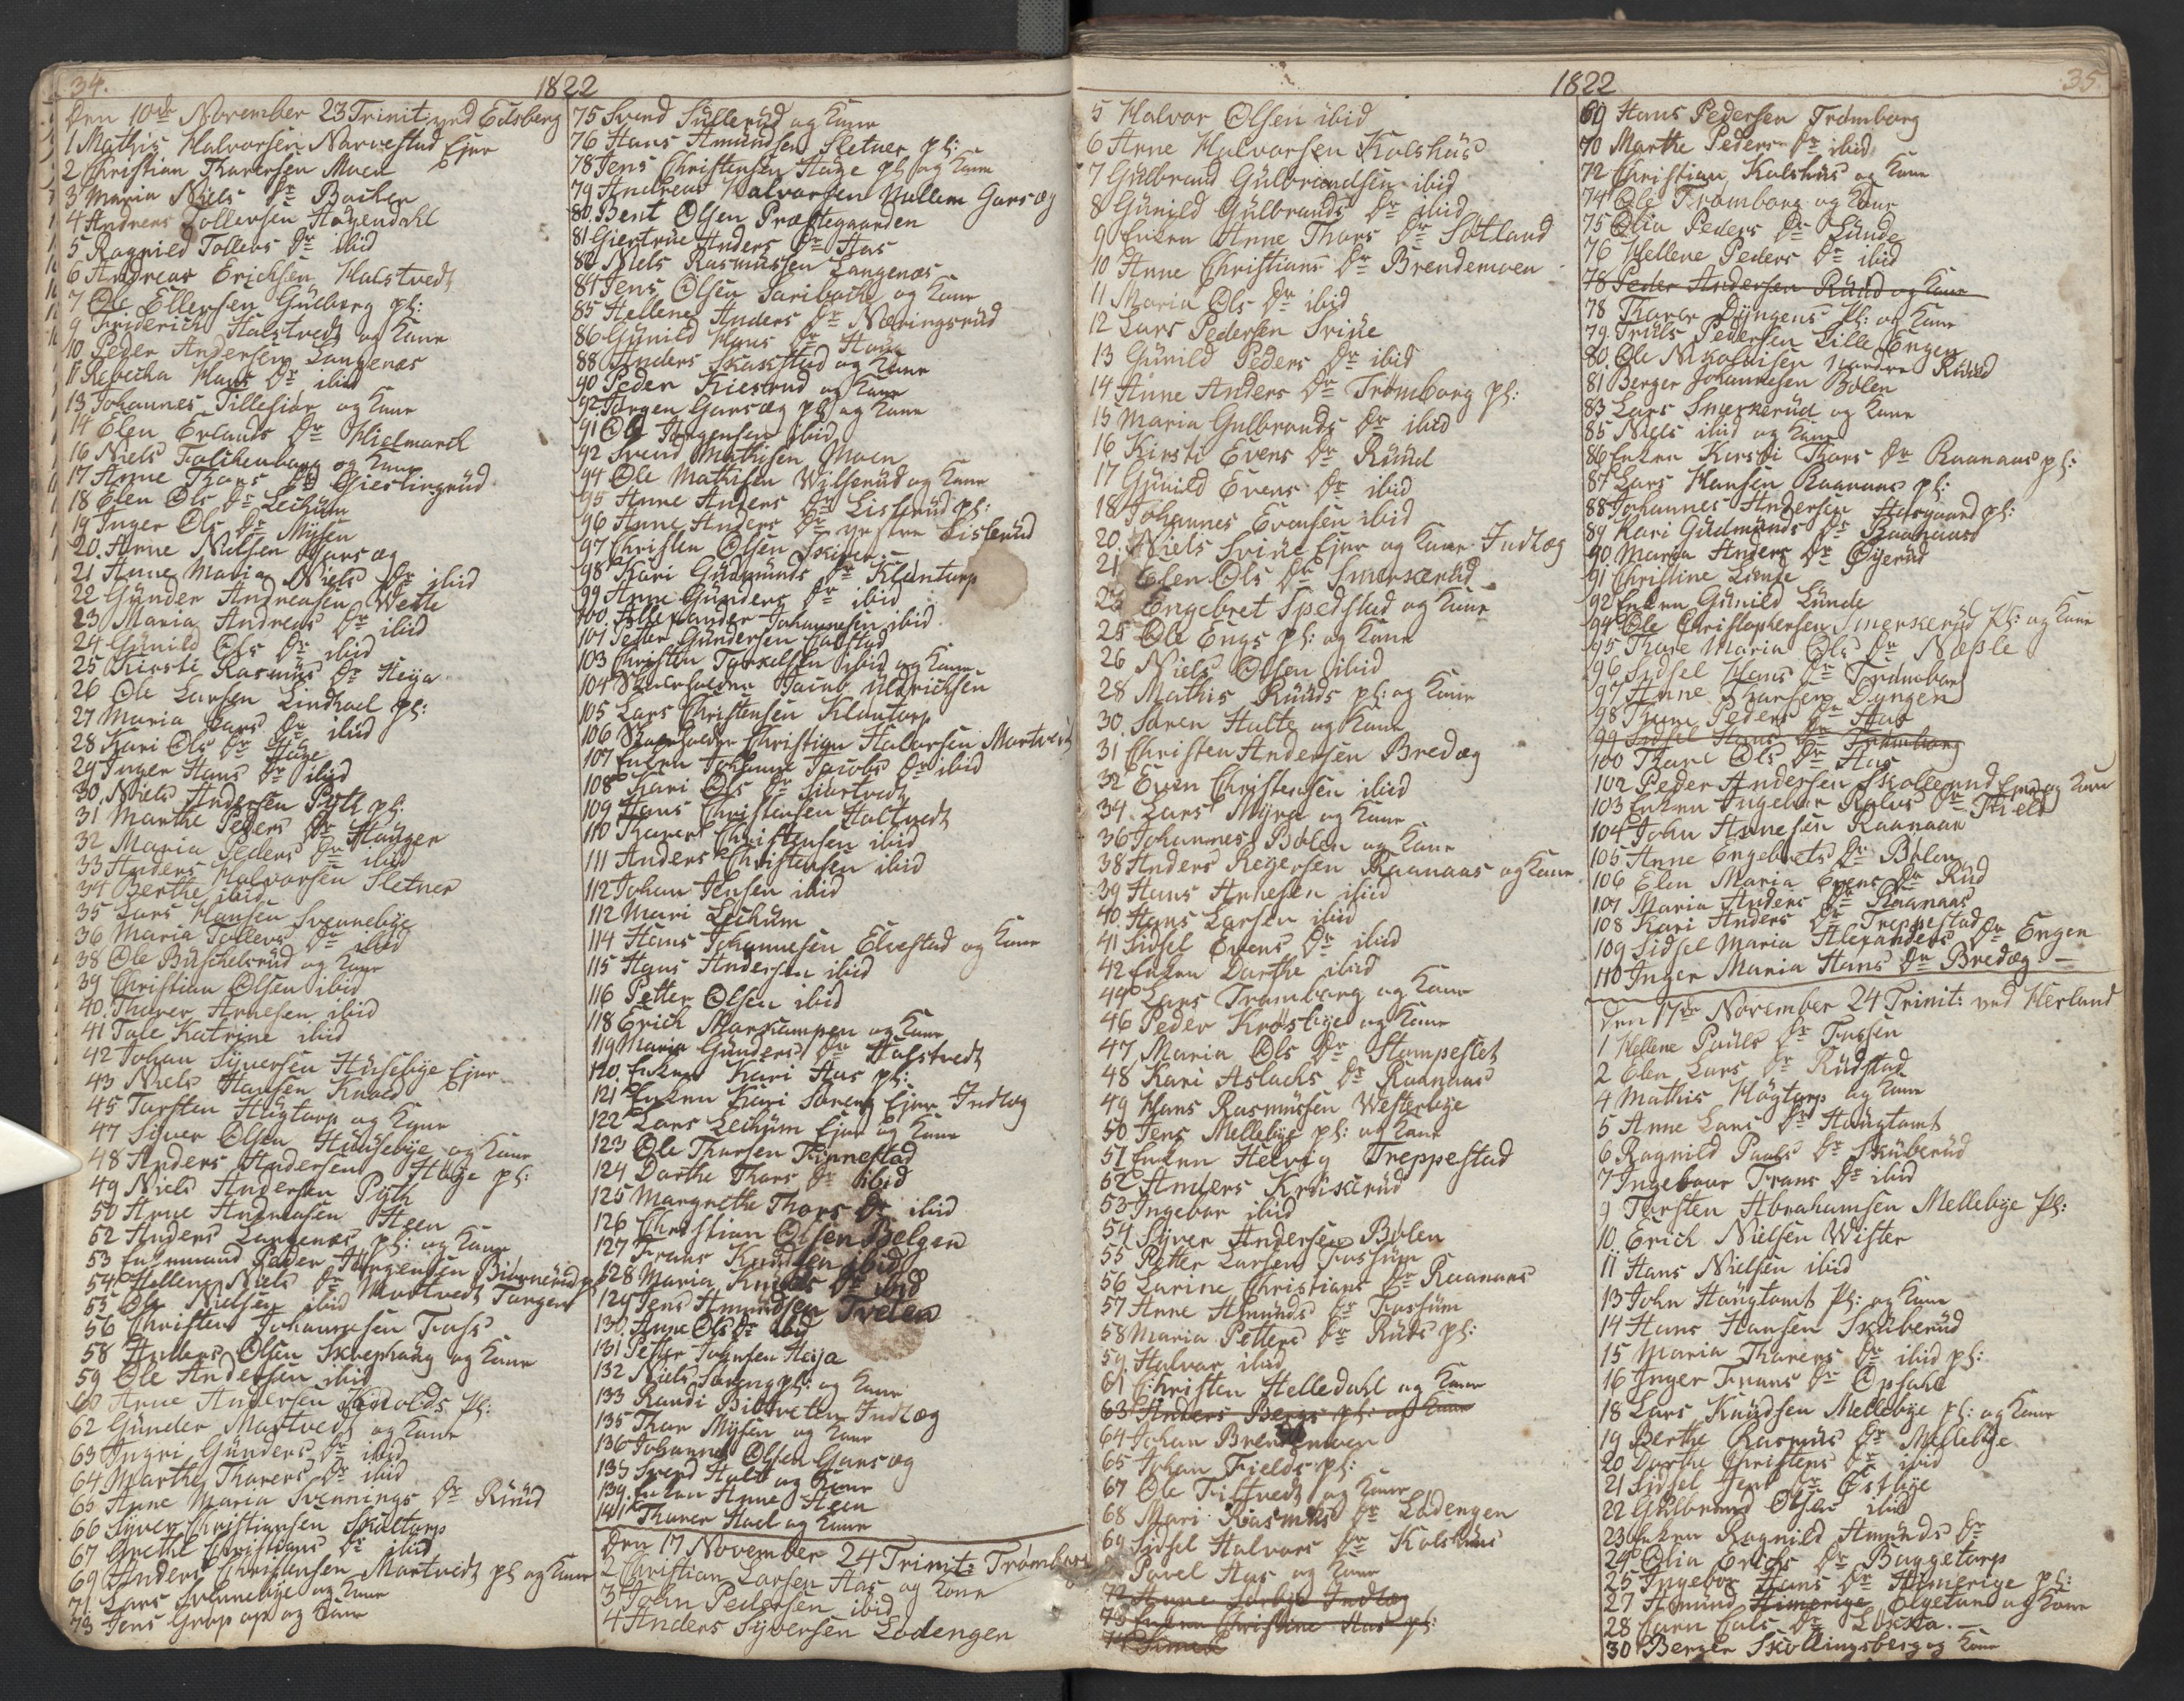 34.
1822
Den 10de November 23 Trinit: ved Edsberg
1 Mathis Halvorsen Narvestad Ejer
2 Christian Thorersen Moen
3 Maria Niels Dr Backen
4 Andreas Tollevsen Høyendahl
5 Ragnild Tollevs Dr ibid
6 Andreas Erichsen Halstvedt
7 Ole Ellevsen Guberg pl:
9 Friderich Halstvedt og Kone
10 Peder Andersen Langenæs
11 Rebecka Hans Dr ibid
13 Johannes Tillefiør og Kone
14 Elen Erlands Dr Hielmarck
16 Niels Falckenborg og Kone
17 Anne Thors Dr Gieslingrud
18 Elen Ols Dr Lechum
19 Inger Ols Dr Mysen
20. Arne Nielsen Garsæg
21 Anne Maria Niels Dr ibid
22 Gunder Andreasen Wette
23 Maria Andreas Dr ibid
24 Gunild Ols Dr ibid
25 Kirsti Rasmus Dr Heya
26 Ole Larsen Lindhoel pl:
27 Maria Lars Dr ibid
28 Kari Ols Dr Hage
29 Inger Hans Dr ibid
30. Niels Andersen Pyth pl:
31 Marthe Peders Dr Haugen
32 Maria Peders Dr ibid
33 Anders Halvorsen Sletner
34 Berthe ibid
35 Lars Hansen Svennebye
36 Maria Tollevs Dr ibid
38 Ole Buschelsrud og Kone
39 Christian Olsen ibid
40. Thorer Arnesen ibid
41 Tale Katrine ibid
42 Johan Syversen Husebye Ejer
43 Niels Hansen Knold
45 Torsten Hugtorp og Kone
47 Syver Olsen Huusebye og Kone
48 Anders Andersen Hauge pl:
49 Niels Andersen Pyth
50 Arne Andreasen Heen
52 Anders Langenæs pl: og Kone
53 Enkemand Peder Jørgensen Biørnerud pl
54 Hellene Niels Dr Mortvedt Tangen
55 Ole Nielsen ibid
56 Christen Johannesen Foss
58 Anders Olsen Skrephaug og Kone
59 Ole Andersen ibid
60 Arne Andersen Knolds Pl:
62 Gunder Mortvedt og Kone
63 Ingri Gunders Dr ibid
64 Marthe Thorers Dr ibid
65 Anne Maria Svennings Dr Ruud
66 Syver Christiansen Skultorp
67 Grethe Christians Dr ibid
69 Anders Christensen Mortvedt pl og Kone
71 Lars Svennebye og Kone
73 Jens Grop og Kone
75 Svend Sullerud og Kone
76 Hans Amundsen Sletner pl:
78 Jens Christensen Hage pl og Kone
79 Andreas Halvorsen Mellem Garsæg
80. Bent Olsen Præstegaarden
81 Giertrue Anders Dr Aas
82 Niels Rasmussen Langenæs
84 Jens Olsen Saribach og Kone
85 Hellene Anders Dr Næringsrud
86 Gunild Hans Dr Hauge
88 Anders Skakstad og Kone
90 Peder Kiesrud og Kone
92. Jørgen Garsæg pl og Kone
91 Ole Jørgensen ibid
92 Svend Mathisen Moen
94 Ole Mathisen Wilserud og Kone
95 Anne Anders Dr Listerud pl:
96 Anne Anders Dr yestre Listerud
97 Christen Olsen Skiven
98 Kari Gudmunds Dr Klontorp
99 Anne Gunders Dr ibid
100. Allexander Johannesen ibid
101 Peder Gundersen Calstad
103 Christen Torkelsen ibid og Kone
104 Skoleholder Jacob Uldrichsen
105 Lars Christensen Klontorp
106 Skoleholder Christian Halvorsen Mortvedt
107 Enken Johanne Jacobs Dr ibid
108 Kari Ols Dr Siurtvedt
109 Hans Christensen Haltvedt
110 Thorer Christensen ibid
111 Anders Christensen ibid
112 Johan Jensen ibid
112 Mari Lechum
114 Hans Johannesen Elvestad og Kone
115 Hans Andersen ibid
116 Petter Olsen ibid
118 Erich Morkampen og Kone
119 Maria Gunders Dr Halstvedt
120. Enken Kari Aas pl:
121 Enken Kari Soreng Ejer Indlæg
122 Lars Lechum Ejer og Kone
123 Ole Thorsen Finnestad
124 Dorthe Thors Dr ibid
125 Margrethe Thors Dr ibid
126 Christian Olsen Belgen
127 Frans Knudsen ibid
128 Maria Knuds Dr ibid
129 Jens Amundsen Tveten
130. Anne Ols Dr ibid
131 Petter Johnsen Heija
132 Niels Soreng pl: og Kone
133 Randi Biltveten Indlæg
135 Thor Mysen og Kone
136 Johannes Olsen Garsæg
138 Svend Hald og Kone
139. Enken Anne Heen
141 Thorer Hoel og Kone
Den 17 November 24 Trinit: Trømborg
2 Christian Larsen Aas og Kone
3 John Pedersen ibid
4 Anders Syversen Lodengen
1822
35.
5 Halvor Olsen ibid
6 Arne Halvorsen Kolshus
7 Gulbrand Gulbrandsen ibid
8 Gunild Gulbrands Dr ibid
9 Enken Anne Thors Dr Sotland
10 Anne Christians Dr Brendemoen
11 Maria Ols Dr ibid
12 Lars Pedersen Sviue
13 Gunild Peders Dr ibid
14 Anne Anders Dr Trømborg pl:
15 Maria Gulbrands Dr ibid
16 Kirsti Evens Dr Ruud
17 Gunild Evens Dr ibid
18 Johannes Evensen ibid
20. Niels Sviue Ejer og Kone Indlæg
21 Elen Ols Dr Smerserud
23 Engebret Spedstad og Kone
25 Ole Engs pl: og Kone
26 Niels Olsen ibid
28 Mathis Ruuds pl: og Kone
30. Søren Hulte og Kone
31 Christen Andersen Bredæg
32 Even Christensen ibid
34. Lars Myre og Kone
36 Johannes Bolen og Kone
38 Anders Regersen Raanaas og Kone
39 Hans Arnesen ibid
40. Hans Larsen ibid
41 Sidsel Evens Dr ibid
42 Enken Dorthe ibid
44 Lars Trømborg og Kone
46 Peder Krosbye og Kone
47 Maria Ols Dr Stampeslet
48 Kari Aslachs Dr Raanaas
49 Hans Rasmussen Westerbye
50 Jens Mellebye pl: og Kone
51 Enken Helvig Treppestad
52 Anders Krossærud
53 Ingebor ibid
54 Syver Andersen Bolen
55 Petter Larsen Fossum
56 Larine Christians Dr Raanaas
57 Anne Amunds Dr Fossum
58 Maria Petters Dr Ruds pl:
59 Halvor ibid
61 Christen Helledahl og Kone
63 Anders Bergs pl: og Kone
64 Johan Brendemoen
65 Johan Fields pl:
67 Ole Filtvedt og Kone
68 Mari Rasmus Dr Lodengen
69 Sidsel Halvors Dr Kolshus
Povel Aas og Kone
72 Anne Sorbye Indlæg
73 Enken Christine Aas pl:
74 Simen
69 Hans Pedersen Trømborg
70 Marthe Peders Dr ibid
72 Christian Kolshus og Kone
74 Ole Trømborg og Kone
75 Olia Peders Dr Lunde
76 Hellene Peders Dr ibid
78 Peder Andersen Ruud og Kone
78 Thorer Dyngens Pl: og Kone
79. Truls Pedersen Lille Engen
80. Ole Nicolaisen nordre Ruud
81 Berger Johannesen Bolen
83 Lars Smerserud og Kone
85 Niels ibid og Kone
86 Enken Kirsti Thors Dr Raanaas pl:
87 Lars Hansen Raanaas pl:
88 Johannes Andersen Aasgaard pl:
89 Kari Gudmunds Dr Raanaas
90. Maria Anders Dr Øyerud
91 Christine Lunde
92 Enken Gunild Lunde
94 Ole Christophersen Smerserud Pl: og Kone
95 Thore Maria Ols Dr Næsle
96 Sidsel Hans Dr Trømborg
97 Anne Thorsen Dyngen
98 Thore Peders Dr Aas
99 Sidsel Hans Dr Trømborg
100 Thore Ols Dr Aas
102 Peder Andersen Skollerud Ejer og Kone
103 Enken Ingebor Rolvs Dr Field
104 John Arnesen Raanaas
105 Anne Engebrets Dr Bolen
106 Elen Maria Evens Dr Rud
107 Maria Anders Dr Raanaas
108 Kari Anders Dr Treppestad
109 Sidsel Maria Alexanders Dr Engen
110 Inger Maria Hans Dr Bredæg
Den 17de November 24 Trinit: ved Herland
1 Hellene Pouls Dr Fossen
2 Elen Lars Dr Rudstad
4 Mathis Høgtorp og Kone
5 Anne Lars Dr Haugtomt
6 Ragnild Pouls Dr Skuberud
7 Ingeborr Frans Dr ibid
9 Torsten Abrahamsen Mellebye Pl:
10. Erich Nielsen Wister
11 Hans Nielsen ibid
13 John Haugtomt Pl: og Kone
14 Hans Hansen Skuberud
15 Maria Thorers Dr ibid pl:
16 Inger Frans Dr Opsahl
18 Lars Knudsen Mellebye pl: og Kone
19 Berthe Rasmus Dr Mellebye
20 Dorthe Christens Dr ibid
21 Sidsel Jens Dr Østbye
22 Gulbrand Olsen ibid
23 Enken Ragnild Amunds Dr
24 Olia Erichs Dr Baggetorp
25 Ingebor Hans Dr Himerige pl:
27 Amund Himerige Elgetun og Kone
28 Caren Cals Dr Løkka.
30 Berger Skollingsberg og Kone